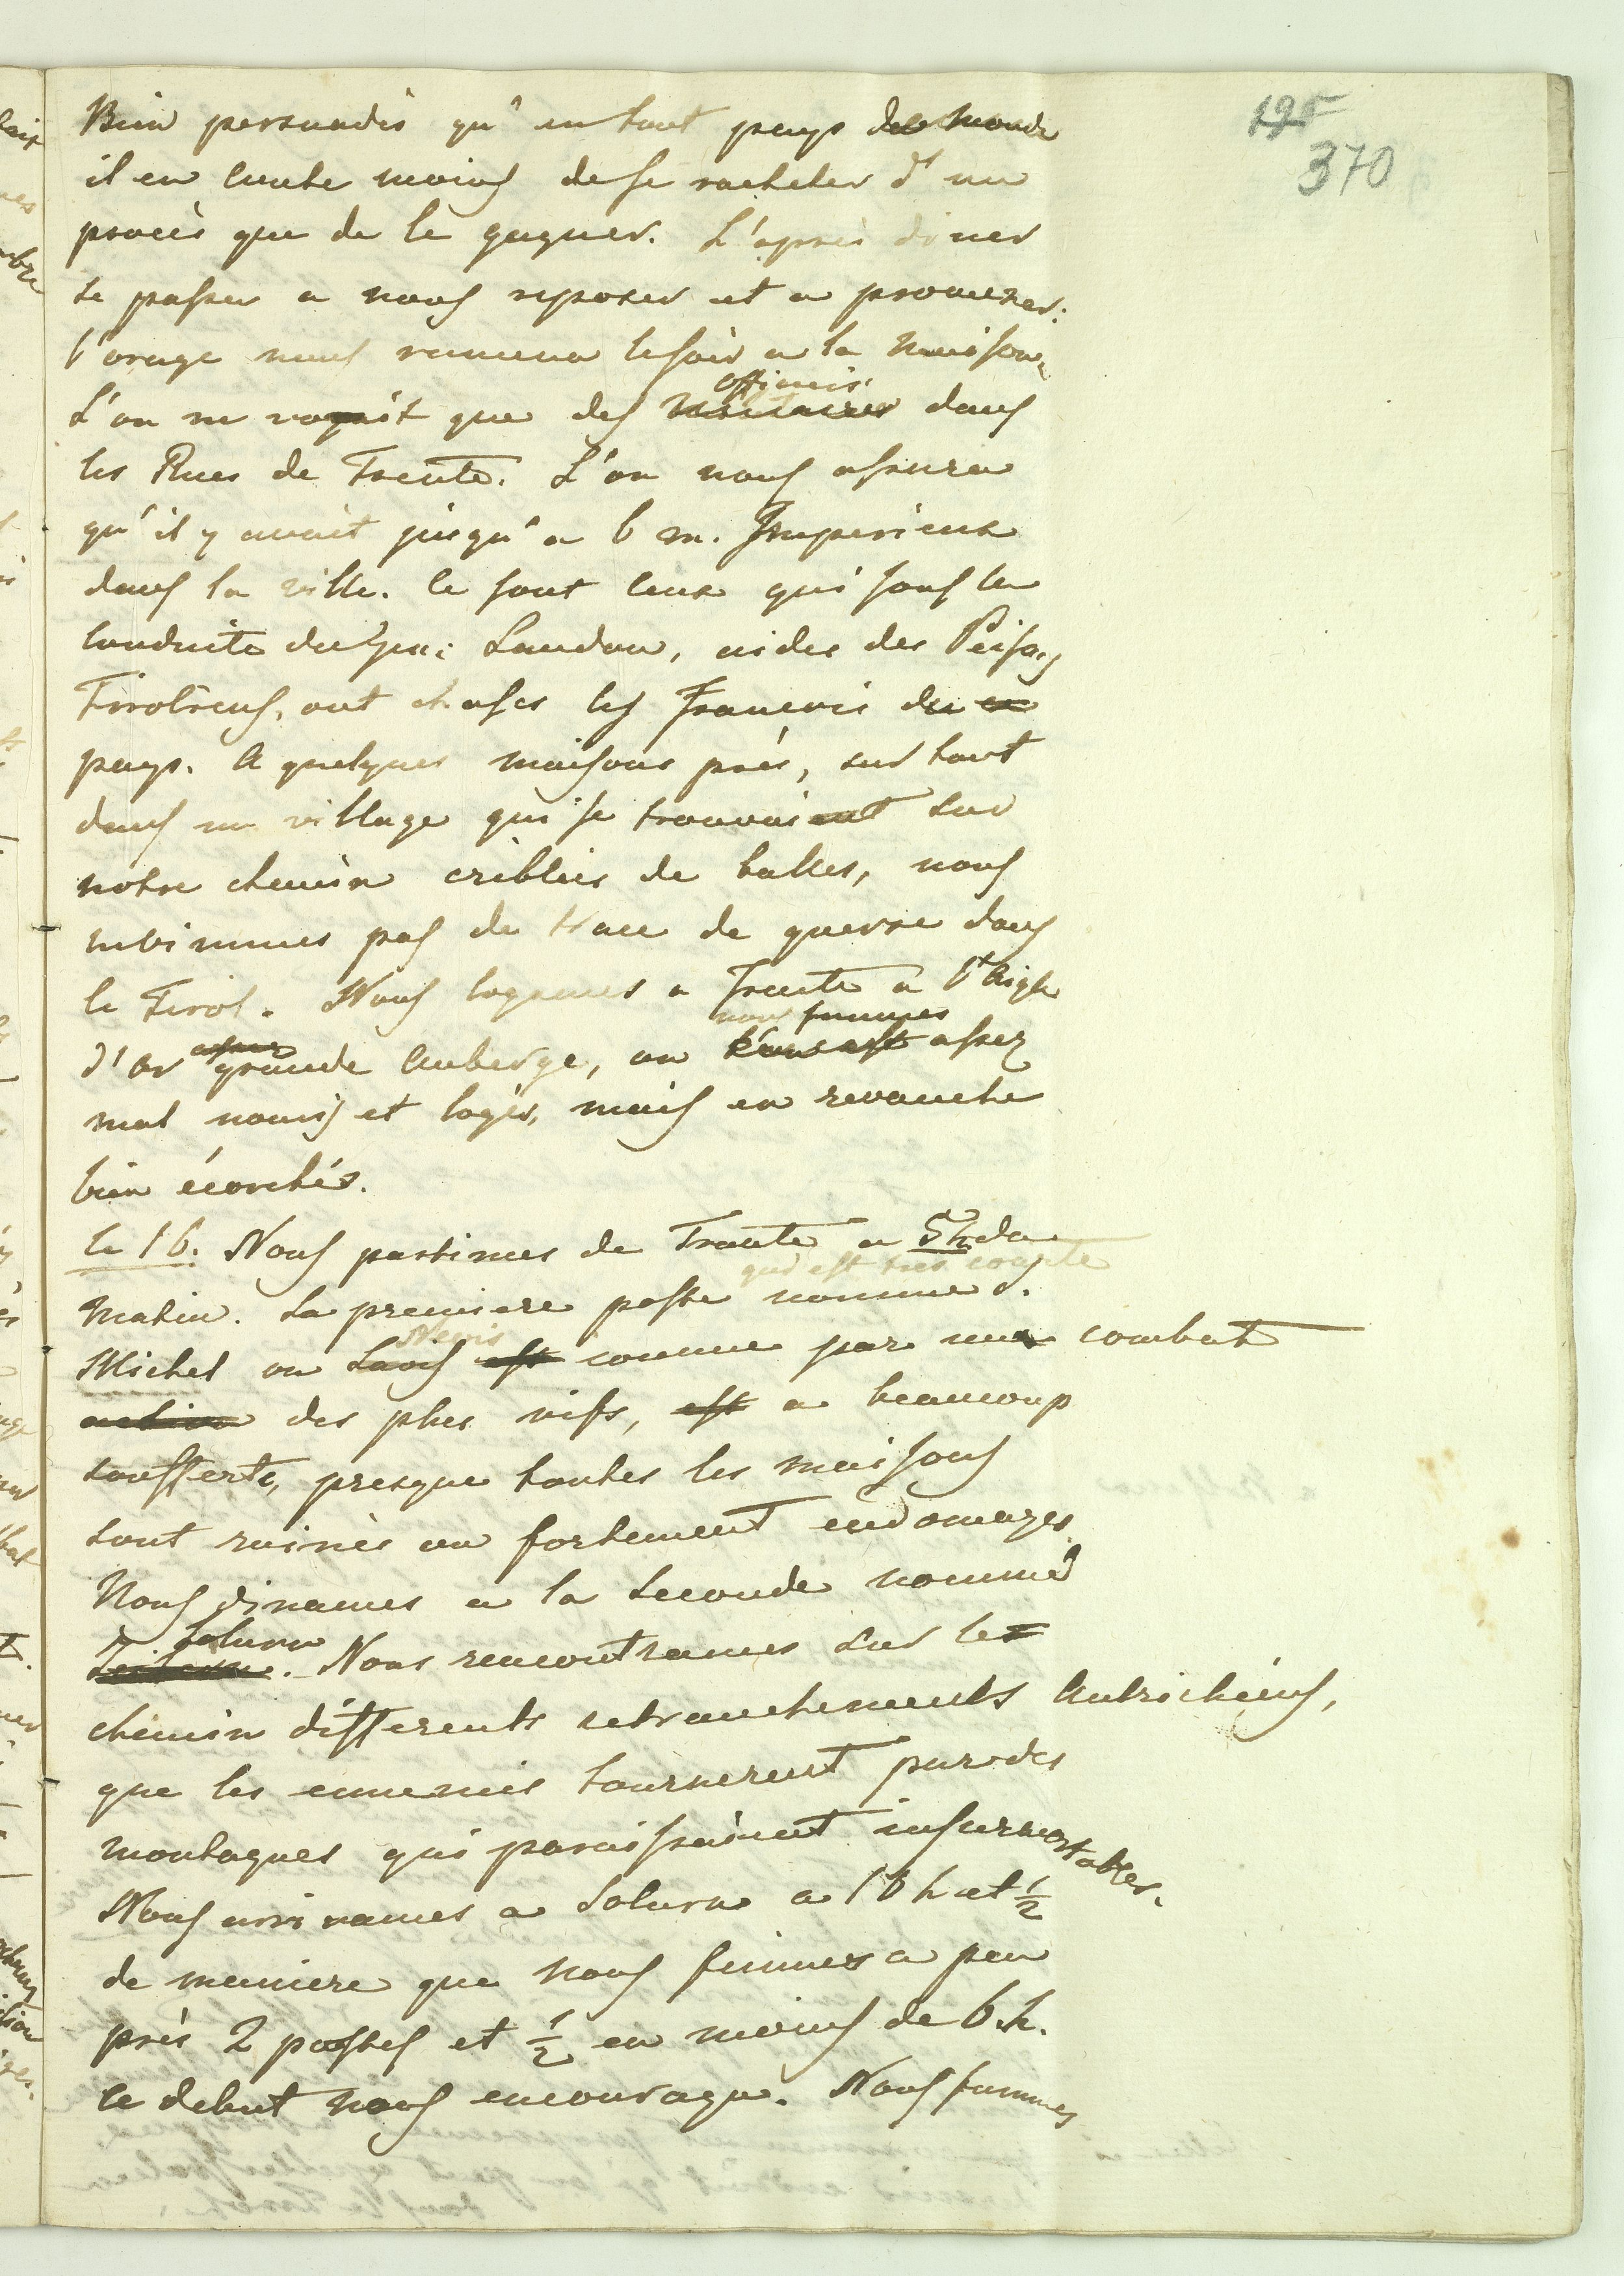 125
370
Bien persuadés qu'en tout pays du monde
il en coute moins de se racheter d'un
procès que de le gagner. L'après diner
se passer a nous reposer et a promener:
l'orage nous ramena le soir a la maison,
officiers
L'on ne voyait que des militaires dans
les Rues de Trente. L'on nous assura
qu'il y avait jusqu'a 6 m. Imperieux
dans la ville. Ce sont ceux qui sous la
conduite du Gen: Laudon, aides des Peisans
Tiroliens, ont chasses les Francois du ce
pays. A quelques maisons près, sur tout
dans un village qui se trouvaient sur
notre chemin criblées de balles, nous
ne vimmes pas de trace de guerre dans
le Tirol. Nous logeames a Trente a l'Aigle
nous fummes
d'or assez grande Auberge, ou l'on est assez
mal nouris et logés, mais en revanche
bien écorchés.
le 16. Nous partimes de Trente a 5 h. du
qui est tres courte
Matin. La premiere poste nommé S.
Nevis
Michel ou Lavis est connue par une combat
action des plus vifs, est a beaucoup
soufferte, presque toutes les maisons
sont ruinés ou fortement endomages
Nous dinames a la seconde nommé
Solurn
Nous rencontrames sur les
chemin différents retranchements Autrichiens,
que les ennemis tournerent par des
montagnes qui paraissaient insurmontables.
Nous arrivames a Solurn a 10 h et ½
de maniere que nous fimmes a peu
près 2 postes et ½ en moins de 6 h.
Ce debut nous encouragea. Nous fummes